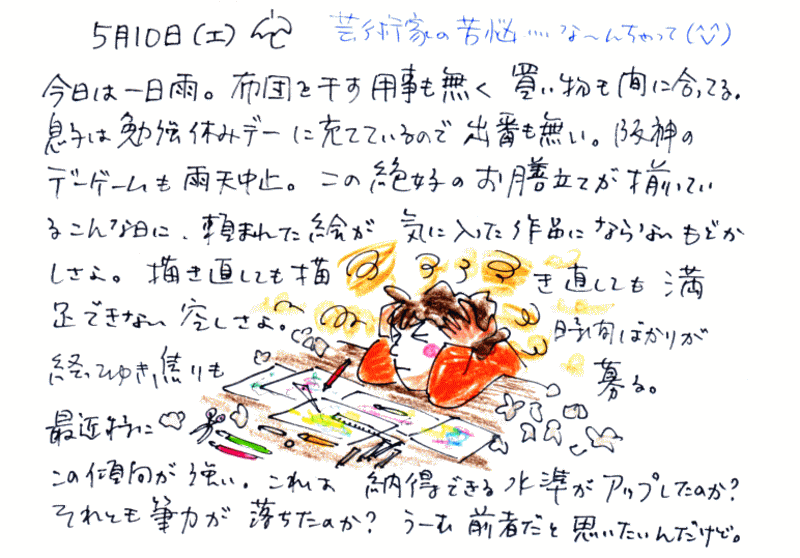 5月10日(土) 芸術家の苦悩‥‥な〜んちゃって(^^)
今日は一日雨。布団を干す用事も無く 買い物も間に合ってる。
息子は勉強休みデーに充てているので 出番も無い。阪神の
デーゲームも雨天中止。この絶好のお膳立てが揃ってい
るこんな日に、頼まれた絵が 気に入った作品にならないもどか
しさよ。描き直しても描き直しても満
足できない空しさよ。時間ばかりが
経ってゆき、焦りも募る。
最近特に
この傾向が強い。これは 納得できる水準がアップしたのか?
それとも筆力が 落ちたのか? うーむ 前者だと思いたいんだけど。